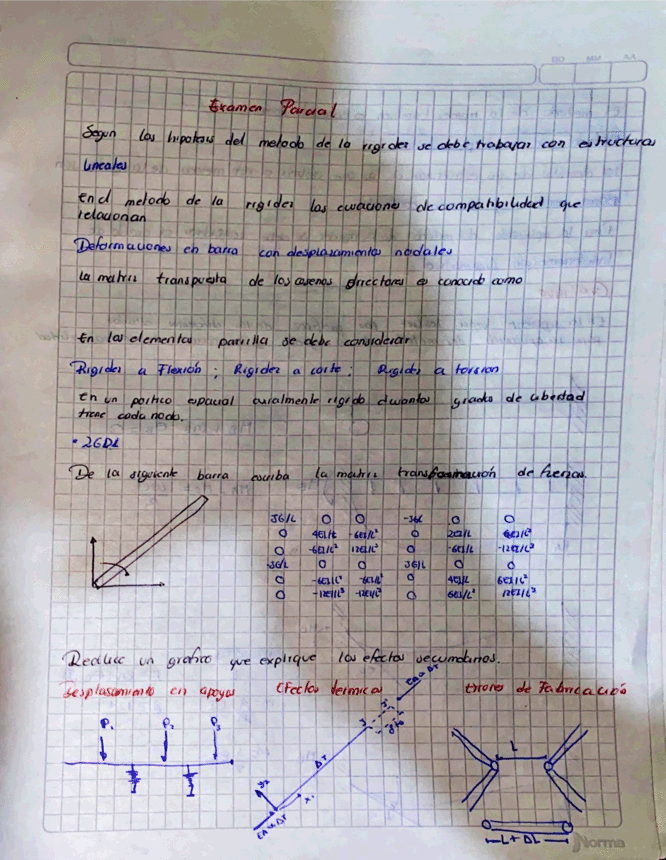 Examen Parcial
Según las hipotesis del metodo de la rigidez se debe trabajar con estructuras
Lineales
En el metodo de la rigidez las ecuaciones de compatibilidad que
relacionan
Deformaciones en barra con desplazamientos nodales
La matriz transpuesta de los cosenos directores es conocido como
En los elementos parrilla se debe considerar
Rigidez a Flexión ; Rigidez a corte ; Rigidez a torsion
En un portico espacial axialmente rigido cuantos grados de libertad
tiene cada nodo.
• 2GDL
De la siguiente barra escriba la matriz transformación de fuerzas.
JG/L 0 0 -JG/L 0 0
0 4EI/L -6EI/L² 0 2EI/L 6EI/L²
0 -6EI/L² 12EI/L³ 0 -6EI/L -12EI/L³
-JG/L 0 0 JG/L 0 0
0 -6EI/L² -6EI/L² 0 4EI/L 6EI/L²
0 -12EI/L³ -12EI/L³ 0 6EI/L² 12EI/L³
Realice un grafico que explique los efectos secundarios.
Desplasamiento en apoyos Efectos termicos Errores de Fabricación
P₁ P₂ P₃
EA∝ΔT
ΔT
y₂ x₁
EA∝ΔT
L
L + ΔL
Norma